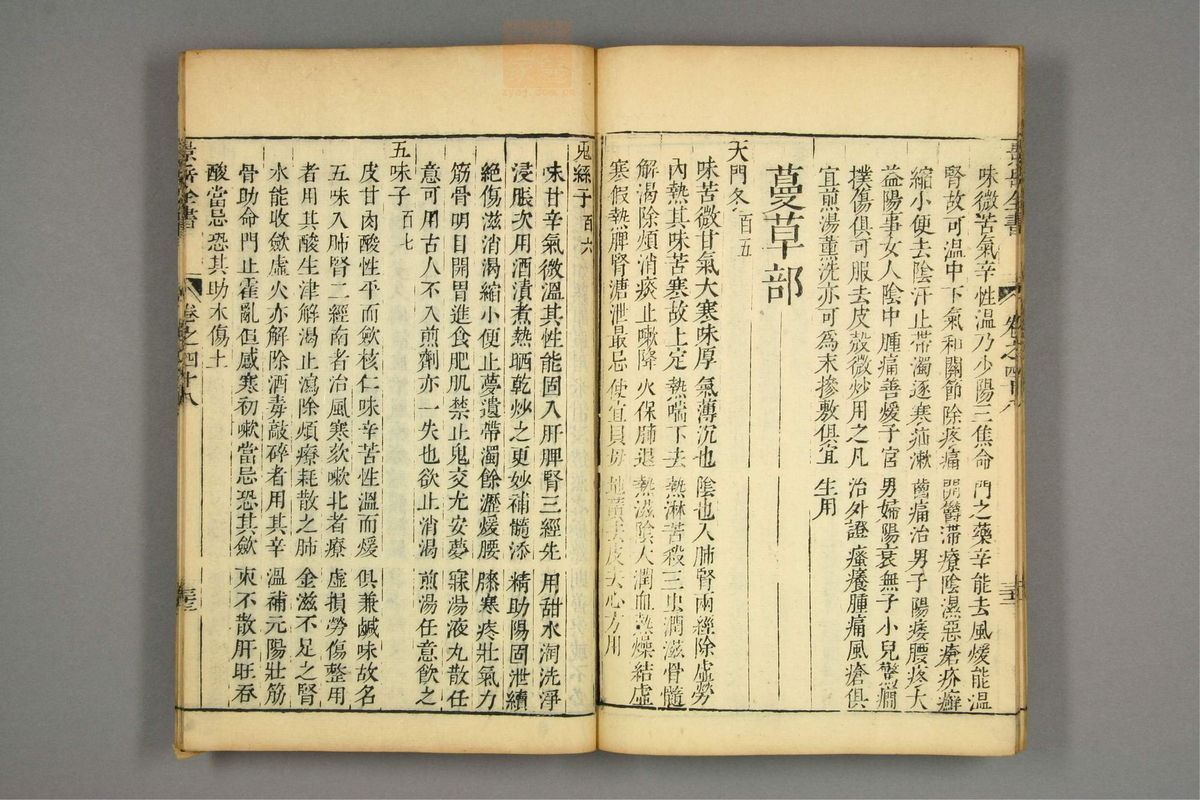 景岳全書 卷之四十八
味微苦氣辛性溫乃少陽三焦命門之藥辛能去風煖能溫
腎故可溫中下氣和關節除疼痛開鬱滯療陰濕惡瘡疥癬
縮小便去陰汗止帶濁逐寒疝漱齒痛治男子陽痿腰疼大
益陽事女人陰中腫痛善煖子宮男婦陽衰無子小兒驚癎
撲傷俱可服去皮殼微炒用之凡治外證瘙癢腫痛風瘡俱
宜煎湯薰洗亦可為末摻敷俱宜生用
蔓草部
天門冬 百五
味苦微甘氣大寒味厚氣薄沉也陰也入肺腎兩經除虛勞
內熱其味苦寒故上定熱喘下去熱淋苦殺三虫潤滋骨髓
解渴除煩消痰止嗽降火保肺退熱滋陰大潤血熱燥結虛
寒假熱脾腎溏泄最忌使宜貝母地黃去皮去心方用
兎絲子 百六
味甘辛氣微溫其性能固入肝脾腎三經先用甜水洵洗淨
浸脹次用酒漬煮熱晒乾炒之更妙補髓添精助陽固泄續
絕傷滋消渴縮小便止夢遺帶濁餘瀝煖腰膝寒疼壯氣力
筋骨明目開胃進食肥肌禁止鬼交尤安夢寐湯液丸散任
意可用古人不入煎劑亦一失也欲止消渴煎湯任意飲之
五味子 百七
皮甘肉酸性平而歛核仁味辛苦性溫而煖俱兼鹹味故名
五味入肺腎二經南者治風寒欬嗽北者療虛損勞傷整用
者用其酸生津解渴止瀉除煩療耗散之肺金滋不足之腎
水能收歛虛火亦解除酒毒敲碎者用其辛溫補元陽壯筋
骨助命門止霍亂但感寒初嗽當忌恐其歛束不散肝旺吞
酸當忌恐其助木傷土
景岳全書 卷之四十八